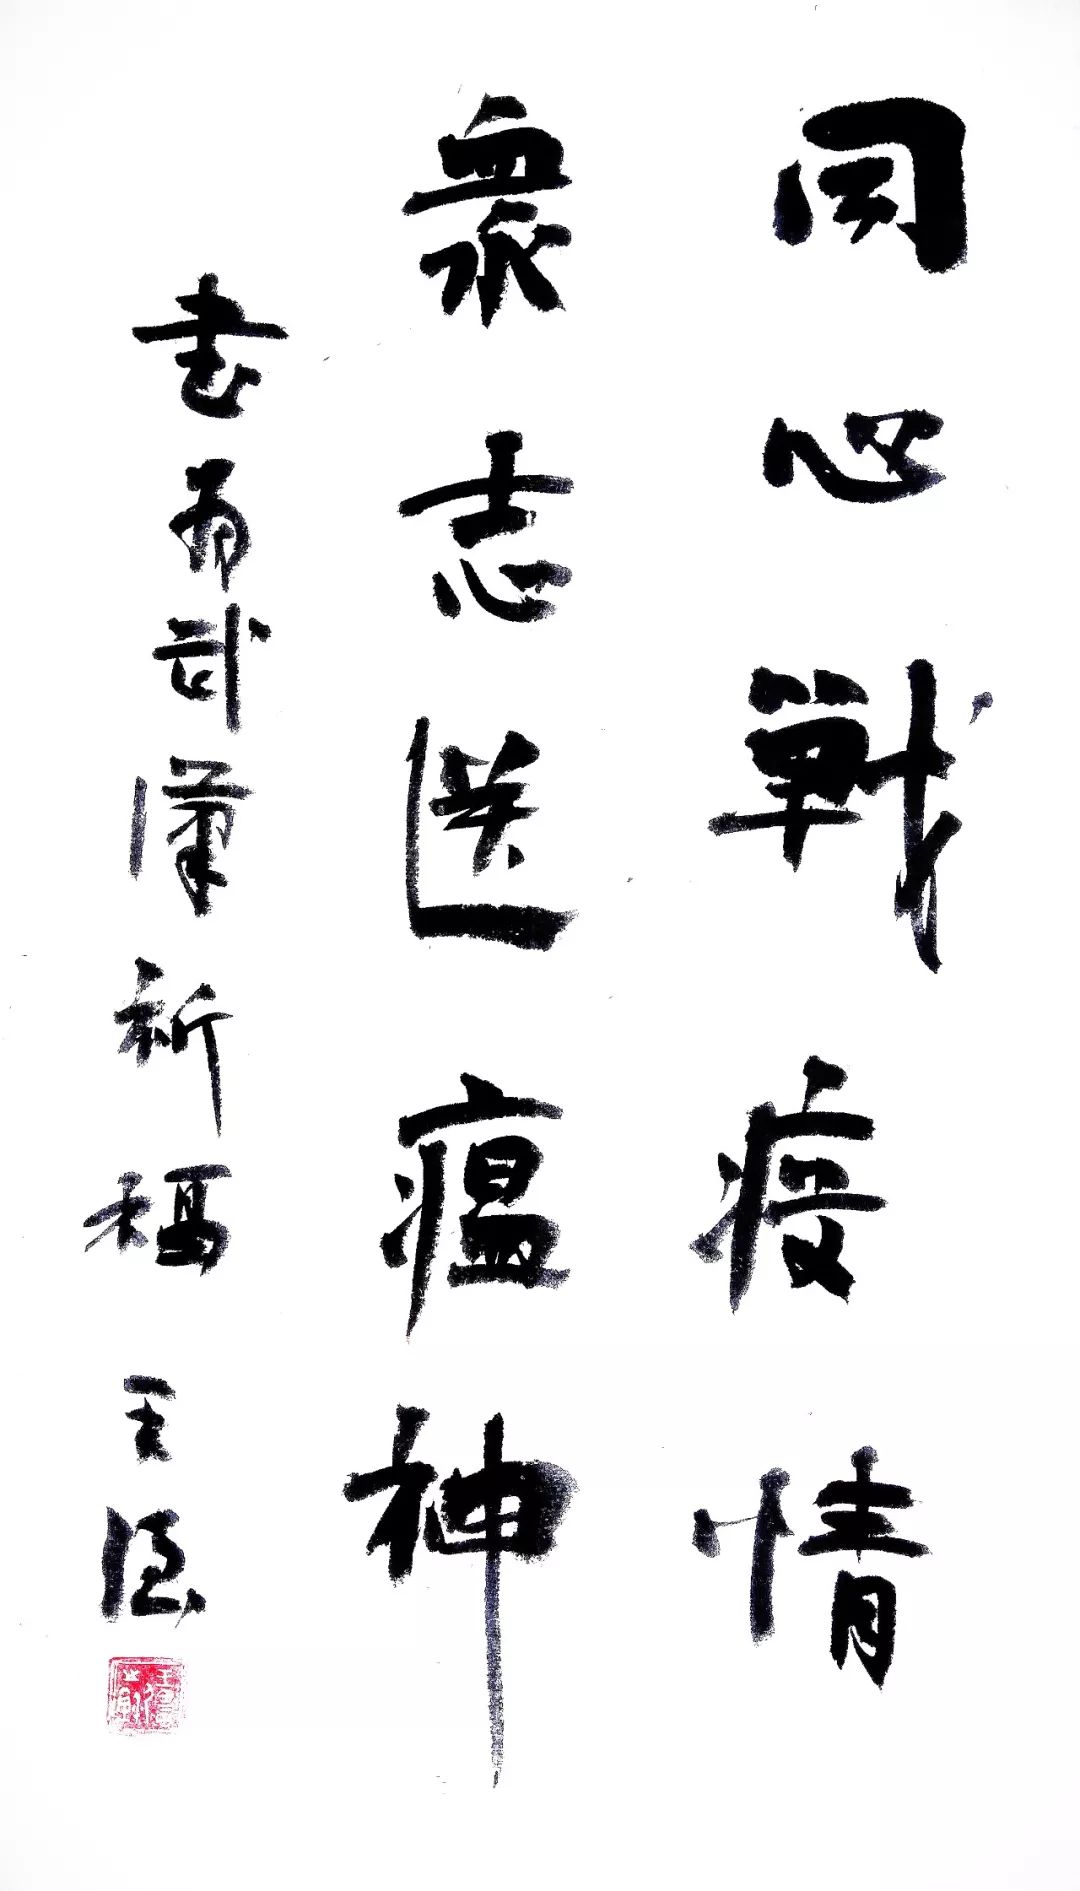 同心戰疫情
衆志送瘟神
書為武漢祈福 王德